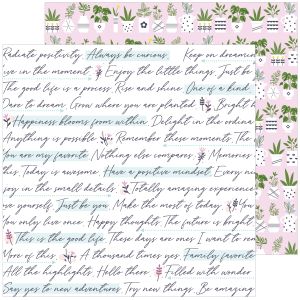 Radiate positivity. Always be curious. Keep on dreamin
ive in the moment Enjoy the little things. Just be
The good life is a process Rise and shine One of a kind
Dare to dream. Grow where you are planted Bright
Happiness blooms from within. Delight in the ordina
Anything is possible Remember these moments. The
You are my favorite Nothing else compares. Memories
this Today is awesome. Have a positive mindset. Every n
joy in the small details. Totally amazing experience
ve yourself. Just be you. Make the most of today. You
You only live once. Happy thoughts. The future is bright
This is the good life. These days are ones I want to rem
More of this. A thousand times yes. Family favorite
All the highlights. Hello there Filled with wonder
Say yes to new adventures. Try new things. Be amazing